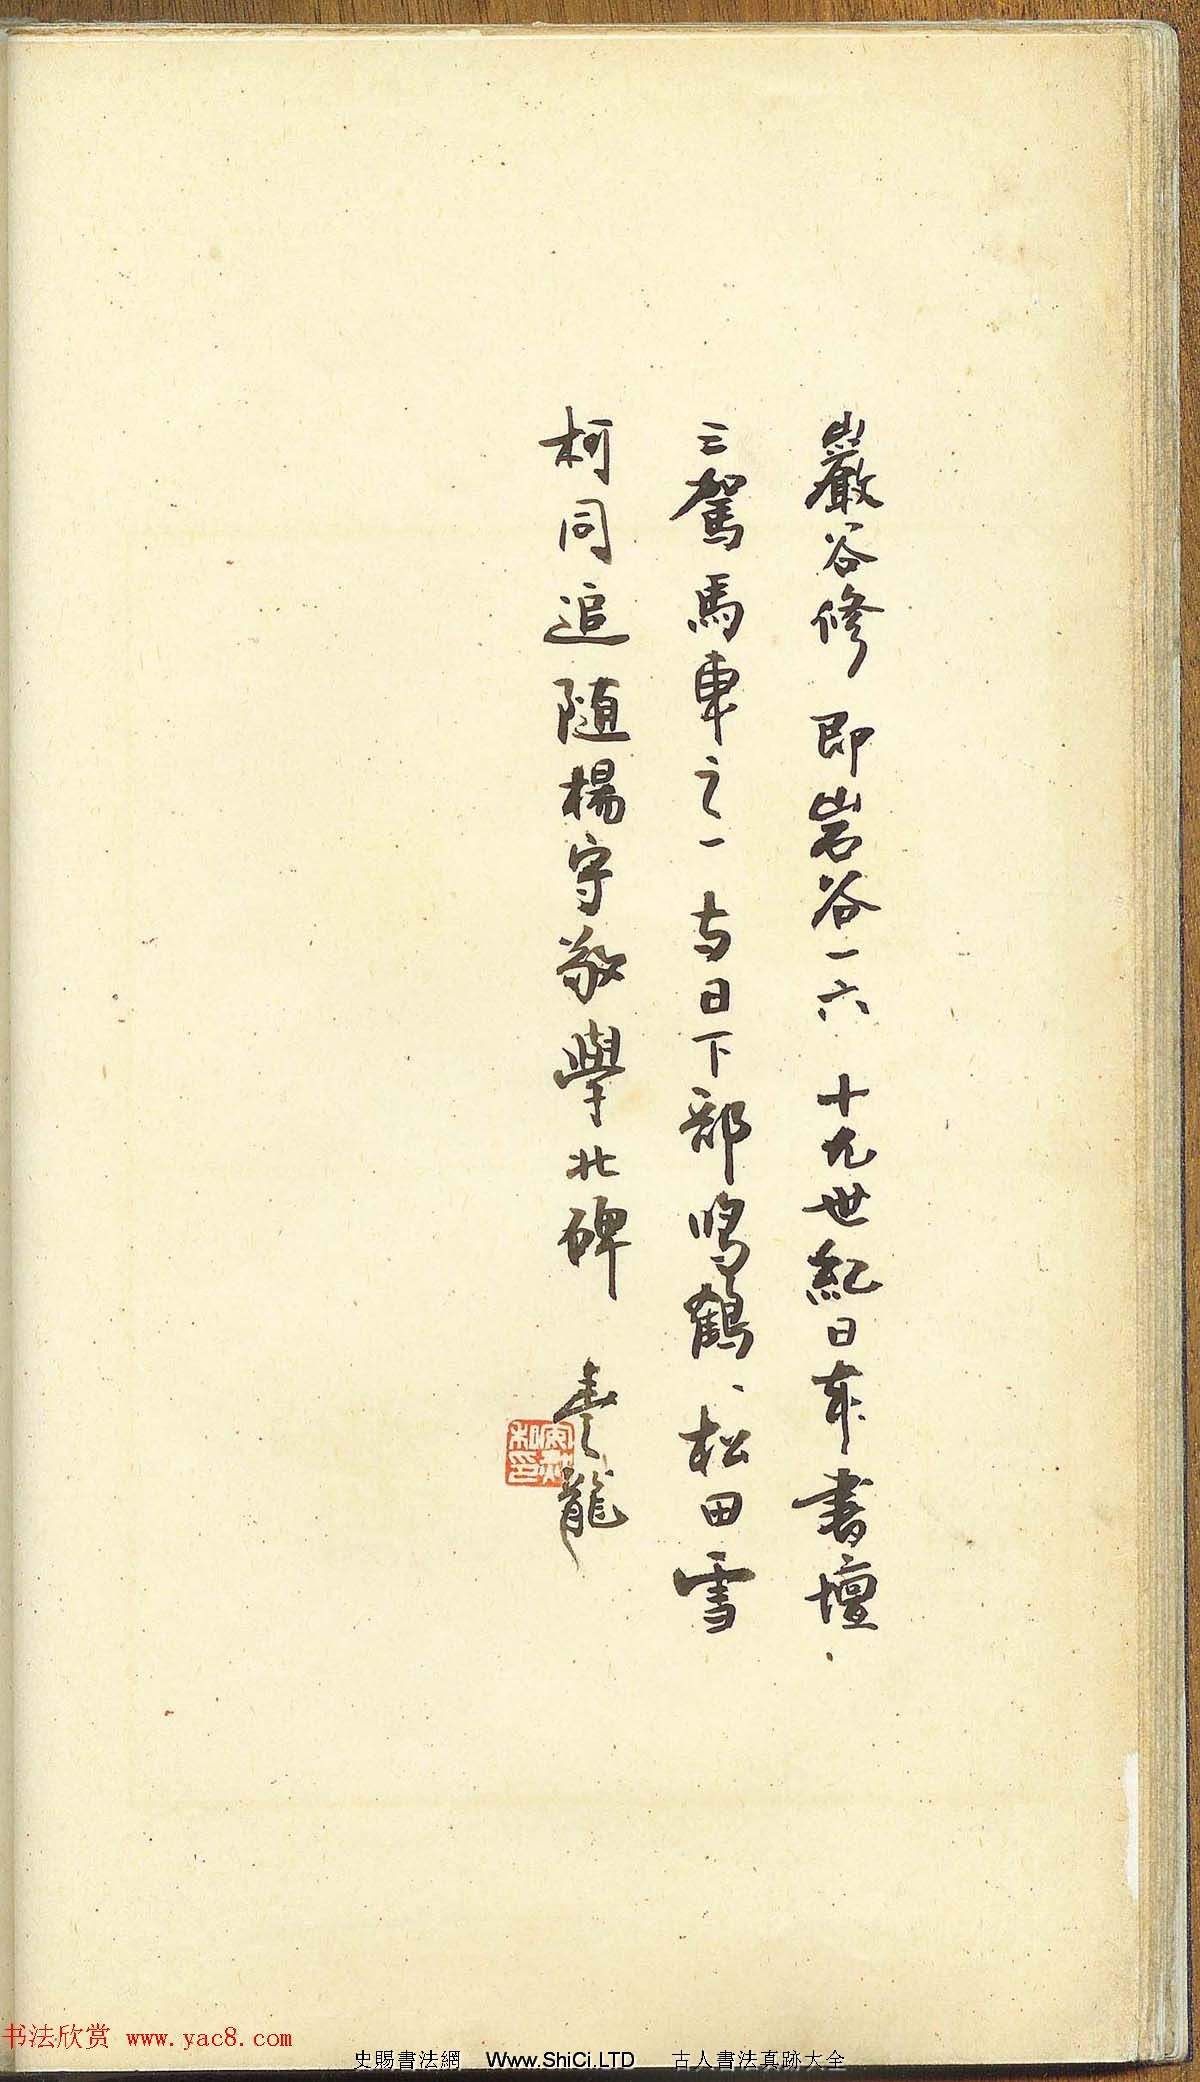 巖谷修 即岩谷一六 十九世紀日本書壇
三駕馬車之一 与日下部鳴鶴、松田雪
柯同追隨楊守敬學北碑 龍
书法欣赏 www.yac8.com
史賜書法網 Www.ShiCi.LTD 古人書法真跡大全